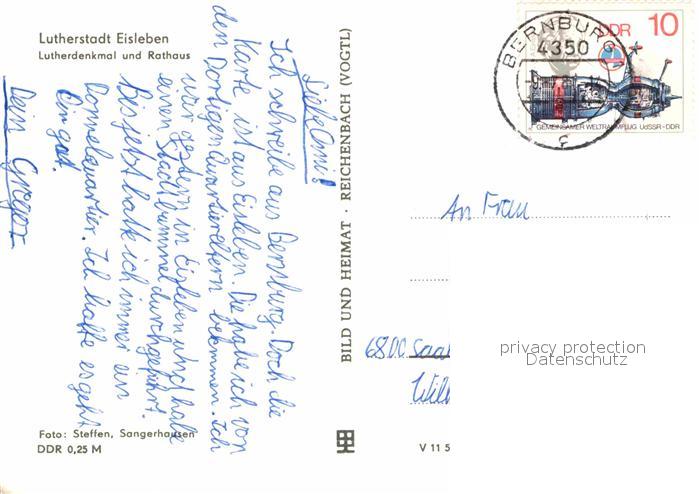 Lutherstadt Eisleben
Lutherdenkmal und Rathaus
Liebe Omi!
Ich schreibe aus Bernburg. Doch die
Karte ist aus Eisleben. Die habe ich von
den Dortigen Quartiereltern bekommen. Ich
war gestern in Eisleben und habe
einen Stadtbummel durchgeführt.
Bis jetzt hatte ich immer ein
Doppelquartier. Ich hoffe es geht
Dir gut.
Dein Gregor
Foto: Steffen, Sangerhausen
DDR 0,25 M
BILD UND HEIMAT · REICHENBACH (VOGTL)
V 11 5
DDR 10
GEMEINSAMER WELTRAUMFLUG UdSSR-DDR
BERNBURG
4350
c
An Frau
6800 Saal
privacy protection
Datenschutz